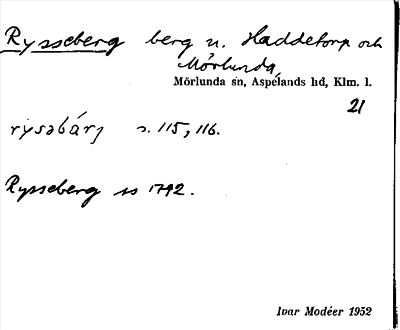 Rysseberg berg n. Haddetorp och
Mörlunda
Mörlunda sn, Aspélands hd, Klm. l.
21
rysabárj s. 115, 116.
Rysseberg ss 1792.
Ivar Modéer 1952